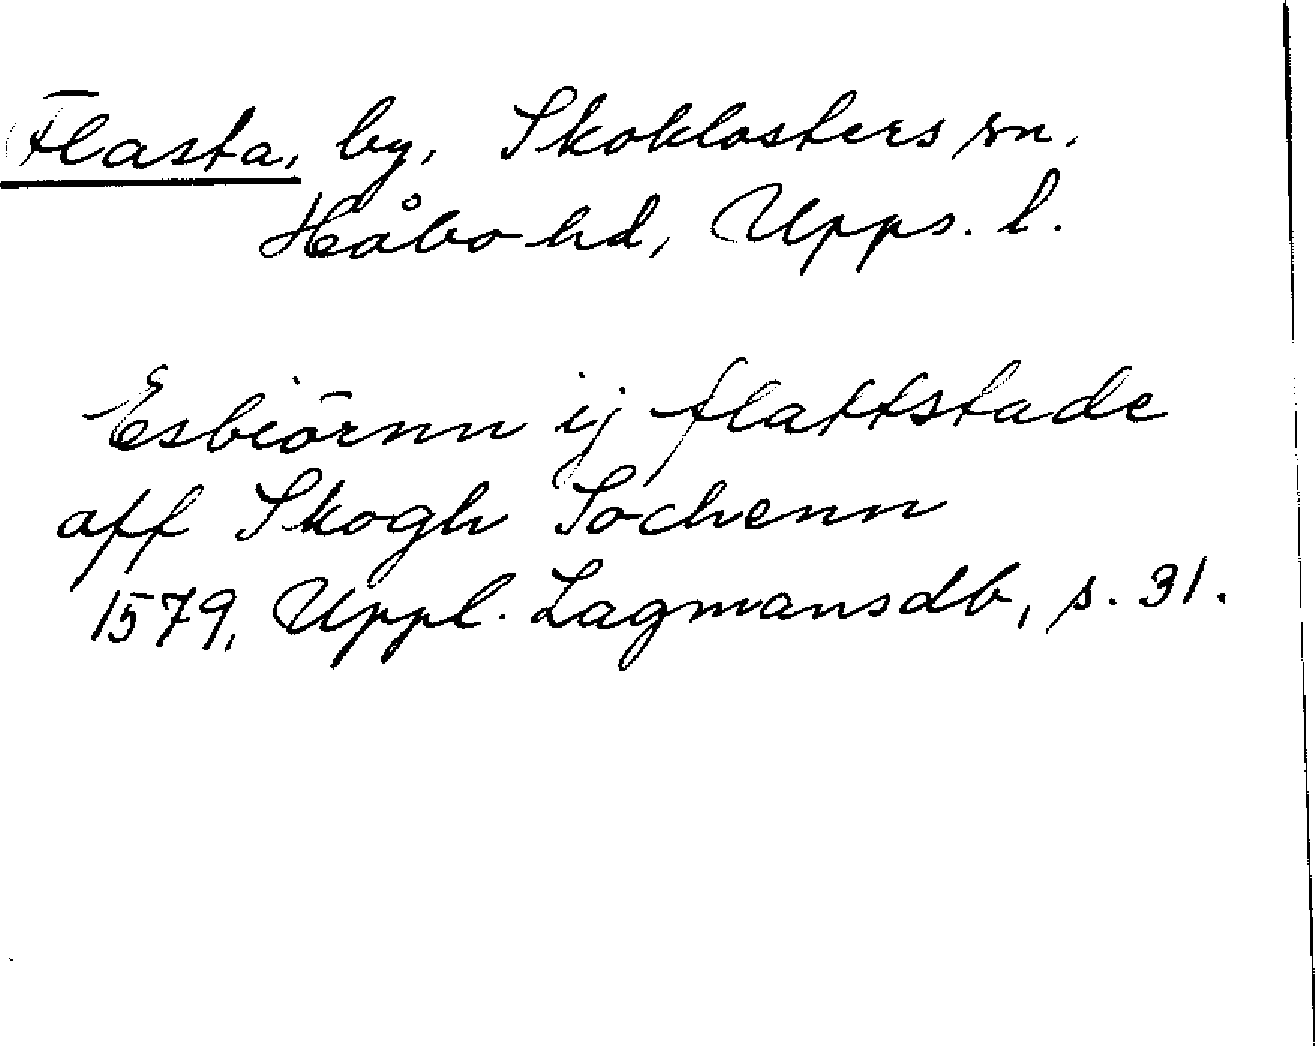 Flasta, by, Skoklosters sn,
Håbo hd, Upps. l.
Esbiörnn ij flattstade
aff Skogh Sochenn
1579, Uppl. Lagmansdb, s. 31.